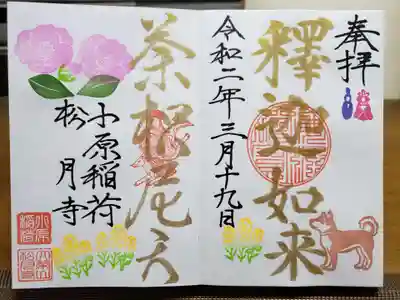 奉拝
釋迦如来
令和二年三月十九日
荼枳尼天
小原稲荷
松月寺